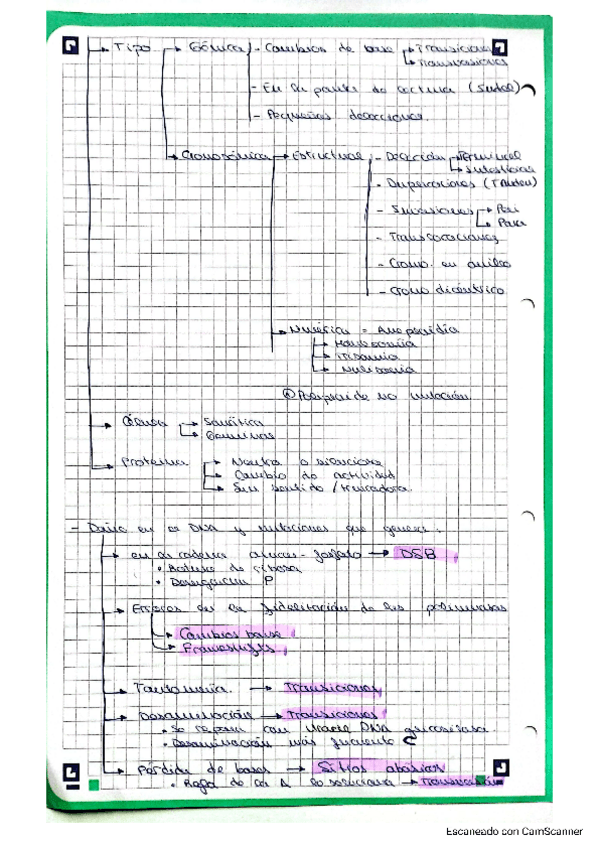 Tipo → Génica - Cambios de base → Transiciones
→ Transversiones
- En la pauta de lectura (Indel)
- Pequeñas deleciones
→ Cromosómica → Estructural - Deleción → Terminal
→ Intersticial
- Duplicaciones (Tándem)
- Inversiones → Peri
→ Para
- Translocaciones
- Cromo. en anillo
- Cromo dicéntrico
→ Numérica = Aneuploidía
→ Monosomía
→ Trisomía
→ Nulisomía
Poliploide no mutación
→ Célula → Somática
→ Germinal
→ Proteína → Neutra o silenciosa
→ Cambio de actividad
→ Sin sentido / truncadora
- Daño en el DNA y mutaciones que genera:
→ en la cadena azúcar-fosfato → DSB
• Rotura de ribosa
• P
→ Errores en la de las polimerasas
→ Cambios base
→ Frameshifts
→ Tautomería → Transiciones
→ Desaminación → Transiciones
• Se repara con Uracil DNA glicosilasa
• Desaminación más frecuente C
→ Pérdida de bases → Sitios abásicos
• Regla de la A → Transversión
Escaneado con CamScanner